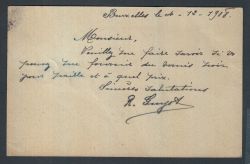 Bruxelles le 4-12-1918.
Monsieur,
Veuillez me faire savoir si vs
pouvez me fournir du vernis
pour paille et à quel prix.
Sincères Salutations
R.